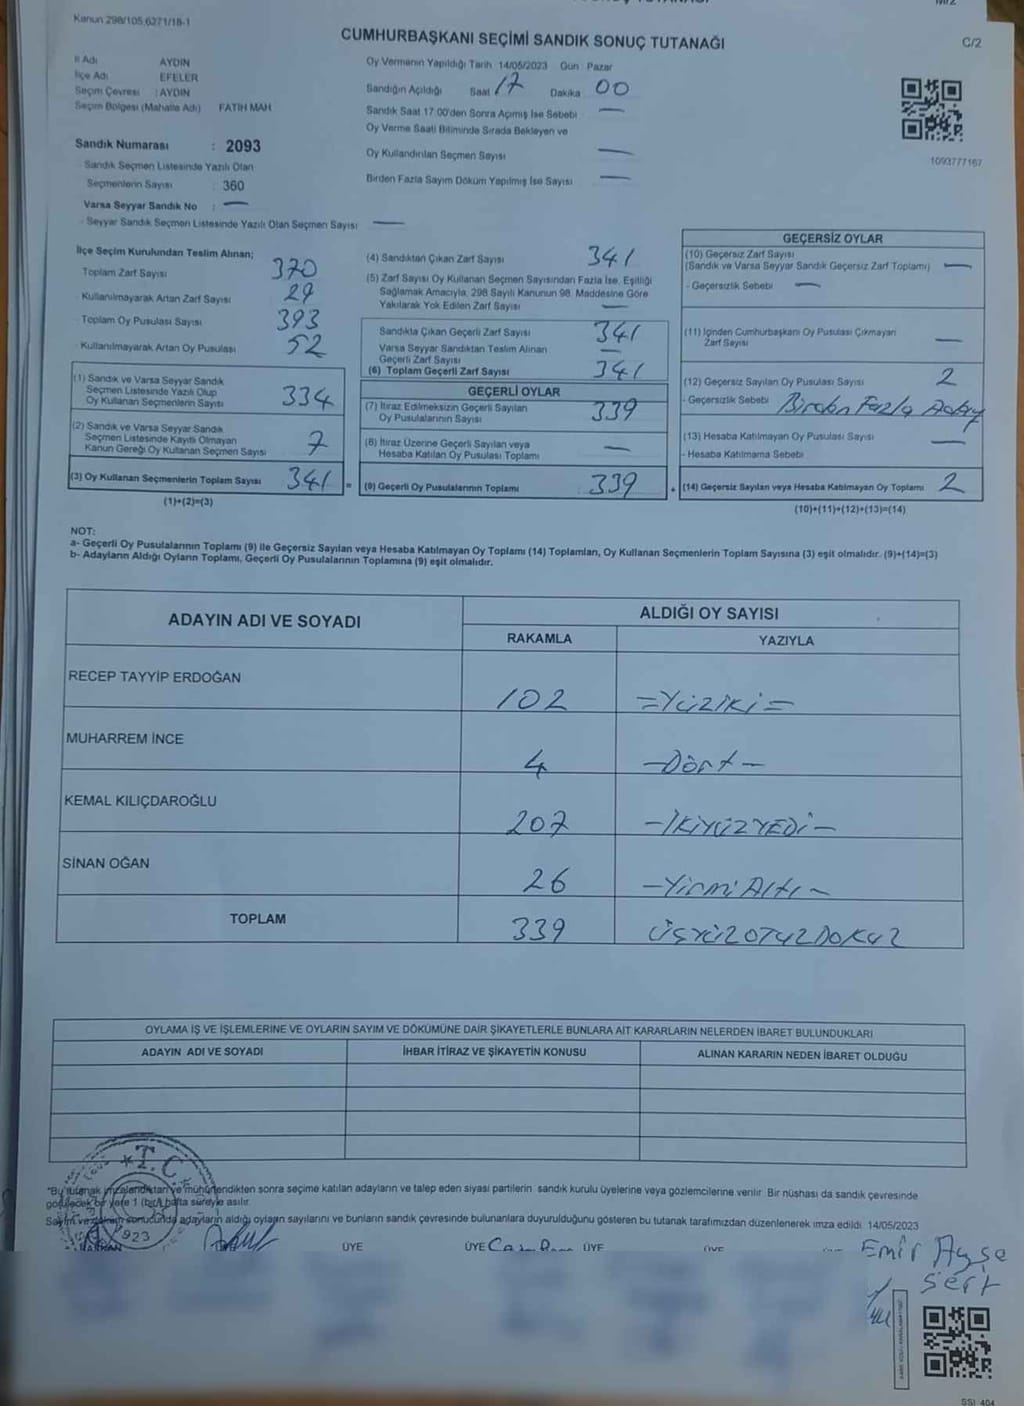 Kanun 298/105,6271/18-1
CUMHURBAŞKANI SEÇİMİ SANDIK SONUÇ TUTANAĞI
C/2
İl Adı AYDIN
İlçe Adı EFELER
Seçim Çevresi : AYDIN
Seçim Bölgesi (Mahalle Adı) FATİH MAH
Sandık Numarası : 2093
Sandık Seçmen Listesinde Yazılı Olan
Seçmenlerin Sayısı : 360
Varsa Seyyar Sandık No : —
- Seyyar Sandık Seçmen Listesinde Yazılı Olan Seçmen Sayısı —
Oy Vermenin Yapıldığı Tarih 14/05/2023 Gün Pazar
Sandığın Açıldığı Saat 17 Dakika 00
Sandık Saat 17.00'den Sonra Açımış İse Sebebi —
Oy Verme Saati Bitiminde Sırada Bekleyen ve
Oy Kullandırılan Seçmen Sayısı —
Birden Fazla Sayım Döküm Yapılmış İse Sayısı —
1093777167
İlçe Seçim Kurulundan Teslim Alınan;
Toplam Zarf Sayısı 370
- Kullanılmayarak Artan Zarf Sayısı 29
Toplam Oy Pusulası Sayısı 393
- Kullanılmayarak Artan Oy Pusulası 52
(1) Sandık ve Varsa Seyyar Sandık
Seçmen Listesinde Yazılı Olup
Oy Kullanan Seçmenlerin Sayısı 334
(2) Sandık ve Varsa Seyyar Sandık
Seçmen Listesinde Kayıtlı Olmayan
Kanun Gereği Oy Kullanan Seçmen Sayısı 7
(3) Oy Kullanan Seçmenlerin Toplam Sayısı 341 =
(1)+(2)=(3)
(4) Sandıktan Çıkan Zarf Sayısı 341
(5) Zarf Sayısı Oy Kullanan Seçmen Sayısından Fazla İse, Eşitliği
Sağlamak Amacıyla, 298 Sayılı Kanunun 98. Maddesine Göre
Yakılarak Yok Edilen Zarf Sayısı —
Sandıkta Çıkan Geçerli Zarf Sayısı 341
Varsa Seyyar Sandıktan Teslim Alınan
Geçerli Zarf Sayısı —
(6) Toplam Geçerli Zarf Sayısı 341
GEÇERLİ OYLAR
(7) İtiraz Edilmeksizin Geçerli Sayılan
Oy Pusulalarının Sayısı 339
(8) İtiraz Üzerine Geçerli Sayılan veya
Hesaba Katılan Oy Pusulası Toplamı —
(9) Geçerli Oy Pusulalarının Toplamı 339 +
GEÇERSİZ OYLAR
(10) Geçersiz Zarf Sayısı
(Sandık ve Varsa Seyyar Sandık Geçersiz Zarf Toplamı) —
- Geçersizlik Sebebi —
(11) İçinden Cumhurbaşkanı Oy Pusulası Çıkmayan
Zarf Sayısı —
(12) Geçersiz Sayılan Oy Pusulası Sayısı 2
- Geçersizlik Sebebi Birden Fazla Aday
(13) Hesaba Katılmayan Oy Pusulası Sayısı —
- Hesaba Katılmama Sebebi
(14) Geçersiz Sayılan veya Hesaba Katılmayan Oy Toplamı 2
(10)+(11)+(12)+(13)=(14)
NOT:
a- Geçerli Oy Pusulalarının Toplamı (9) ile Geçersiz Sayılan veya Hesaba Katılmayan Oy Toplamı (14) Toplamları, Oy Kullanan Seçmenlerin Toplam Sayısına (3) eşit olmalıdır. (9)+(14)=(3)
b- Adayların Aldığı Oyların Toplamı, Geçerli Oy Pusulalarının Toplamına (9) eşit olmalıdır.
ADAYIN ADI VE SOYADI
ALDIĞI OY SAYISI
RAKAMLA YAZIYLA
RECEP TAYYİP ERDOĞAN 102 =YÜZİKİ=
MUHARREM İNCE 4 -Dört-
KEMAL KILIÇDAROĞLU 207 -İKİYÜZYEDİ-
SİNAN OĞAN 26 -Yirmi Altı-
TOPLAM 339 ÜÇYÜZOTUZDOKUZ
OYLAMA İŞ VE İŞLEMLERİNE VE OYLARIN SAYIM VE DÖKÜMÜNE DAİR ŞİKAYETLERLE BUNLARA AİT KARARLARIN NELERDEN İBARET BULUNDUKLARI
ADAYIN ADI VE SOYADI İHBAR İTİRAZ VE ŞİKAYETİN KONUSU ALINAN KARARIN NEDEN İBARET OLDUĞU
T.C.
*Bu tutanak imzalandıktan ve mühürlendikten sonra seçime katılan adayların ve talep eden siyasi partilerin sandık kurulu üyelerine veya gözlemcilerine verilir. Bir nüshası da sandık çevresinde
görülecek bir yere 1 (bir) hafta süreyle asılır.
Sayım ve döküm sonucunda adayların aldığı oyların sayılarını ve bunların sandık çevresinde bulunanlara duyurulduğunu gösteren bu tutanak tarafımızdan düzenlenerek imza edildi. 14/05/2023
1923
ÜYE ÜYE ÜYE ÜYE
Emir Ayşe
Sert
SSI 404